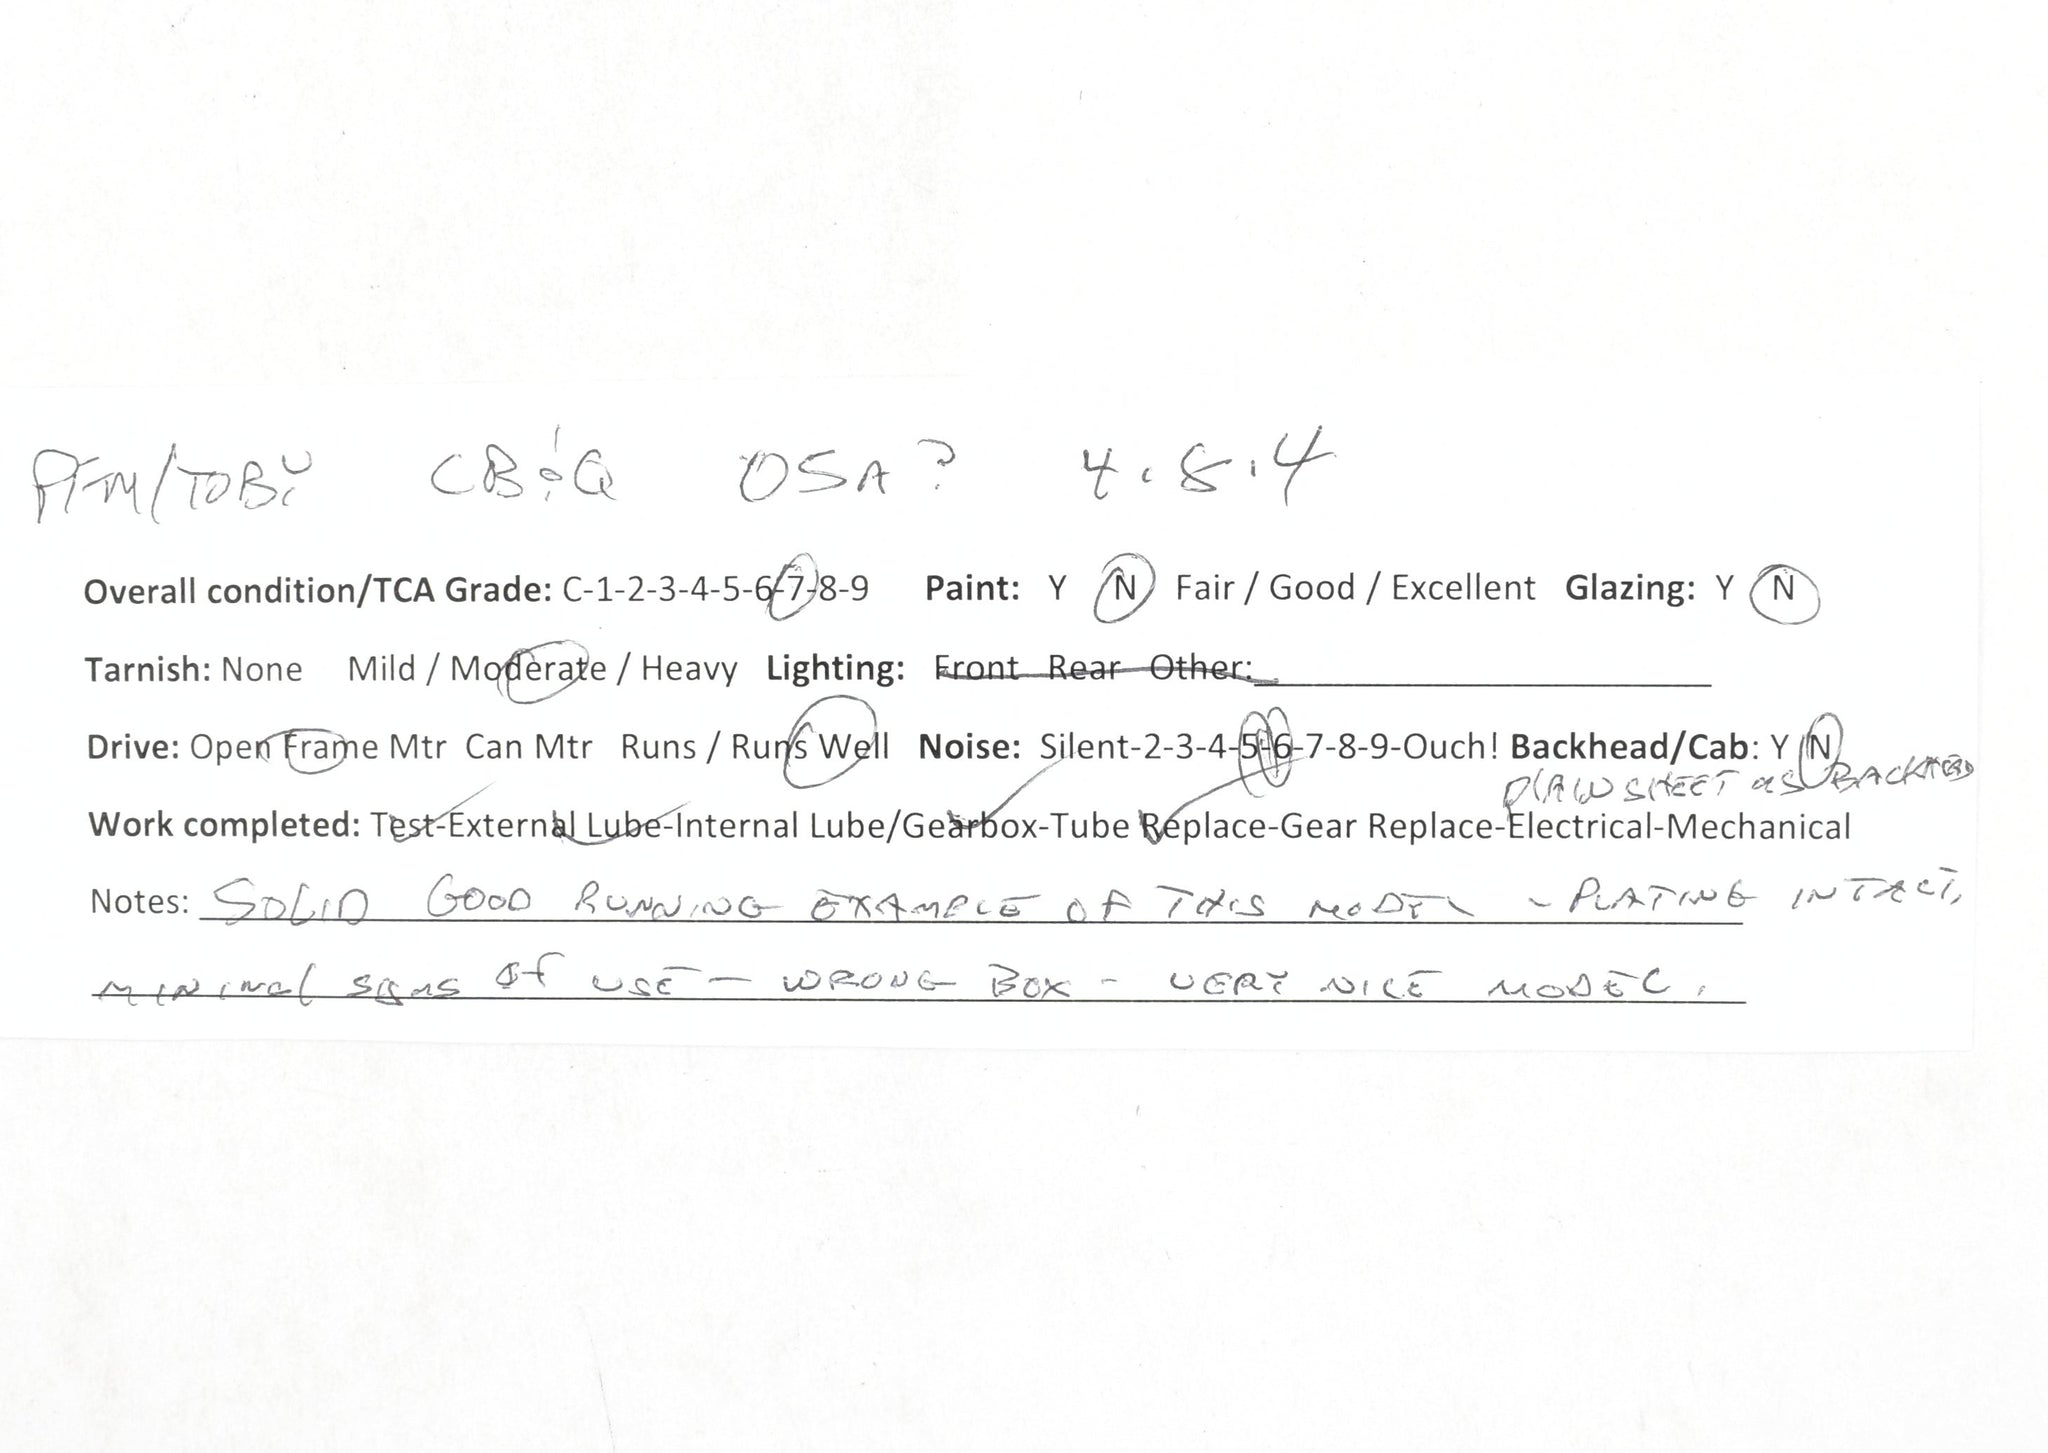 PFM/TOBY CB&Q O5A? 4.8.4
Overall condition/TCA Grade: C-1-2-3-4-5-6-7-8-9 Paint: Y N Fair / Good / Excellent Glazing: Y N
Tarnish: None Mild / Moderate / Heavy Lighting: Front Rear Other:
Drive: Open Frame Mtr Can Mtr Runs / Runs Well Noise: Silent-2-3-4-5-6-7-8-9-Ouch! Backhead/Cab: Y N
SHEET as BACKHEAD
Work completed: Test-External Lube-Internal Lube/Gearbox-Tube Replace-Gear Replace-Electrical-Mechanical
Notes: SOLID GOOD RUNNING EXAMPLE OF THIS MODEL - PLATING INTACT,
MINIMAL SIGNS OF USE - WRONG BOX - VERY NICE MODEL.